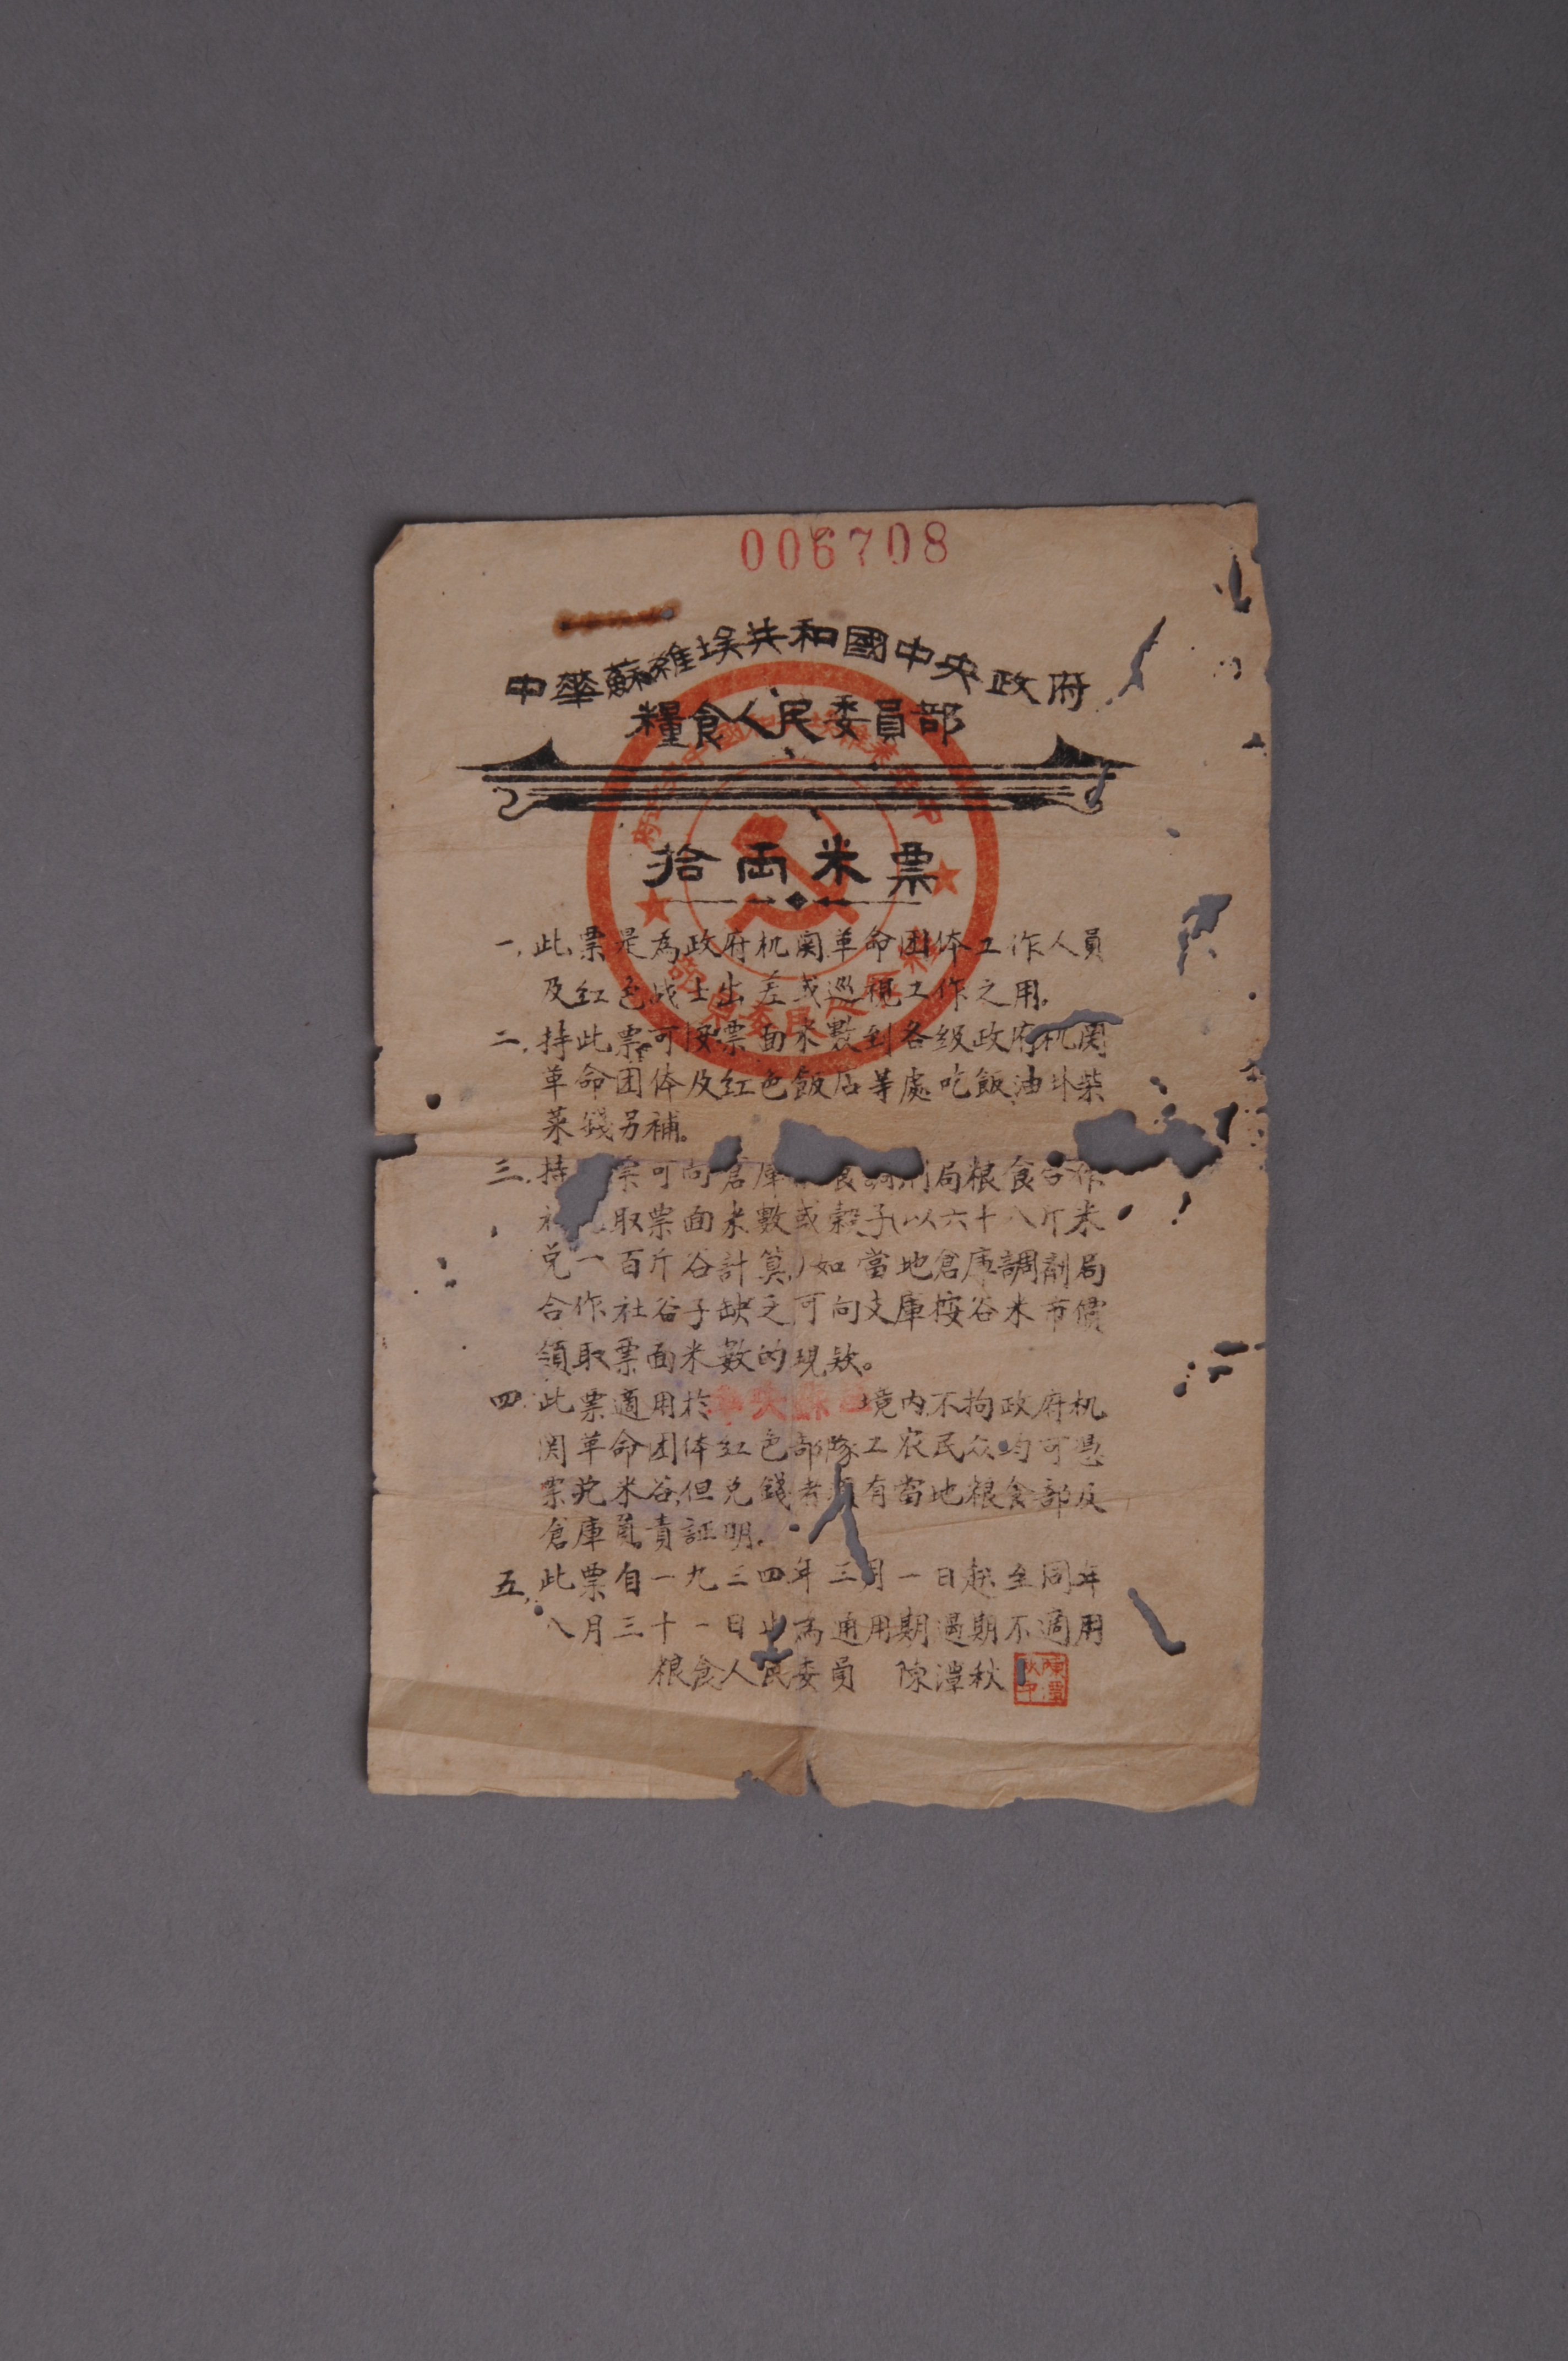 006708
中華蘇維埃共和國中央政府
糧食人民委員部
拾両米票
一.此票是為政府机関革命团体工作人員
及红色战士出差或巡視工作之用。
二.持此票可按票面米數到各级政府机関
革命团体及红色飯店等處吃飯油
柴
菜錢另補。
三.持 票可向倉庫 局粮食合作
取票面米數或穀子(以六十八斤米
兑一百斤谷計算)如當地倉庫調劑局
合作社谷子缺乏可向支庫按谷米市價
領取票面米數的現欵。
四.此票適用於 境内不拘政府机
関革命团体红色部隊工农民众均可憑
票兑米谷,但兑錢者 有當地粮食部及
倉庫負責証明。
五.此票自一九三四年三月一日起至同年
八月三十一日止為通用期過期不適用
粮食人民委員 陳潭秋